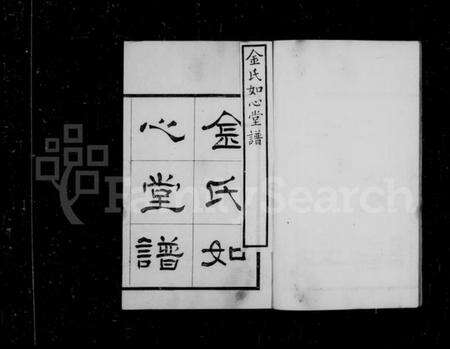 金氏如心堂譜
金氏如
心堂譜
FamilySearch